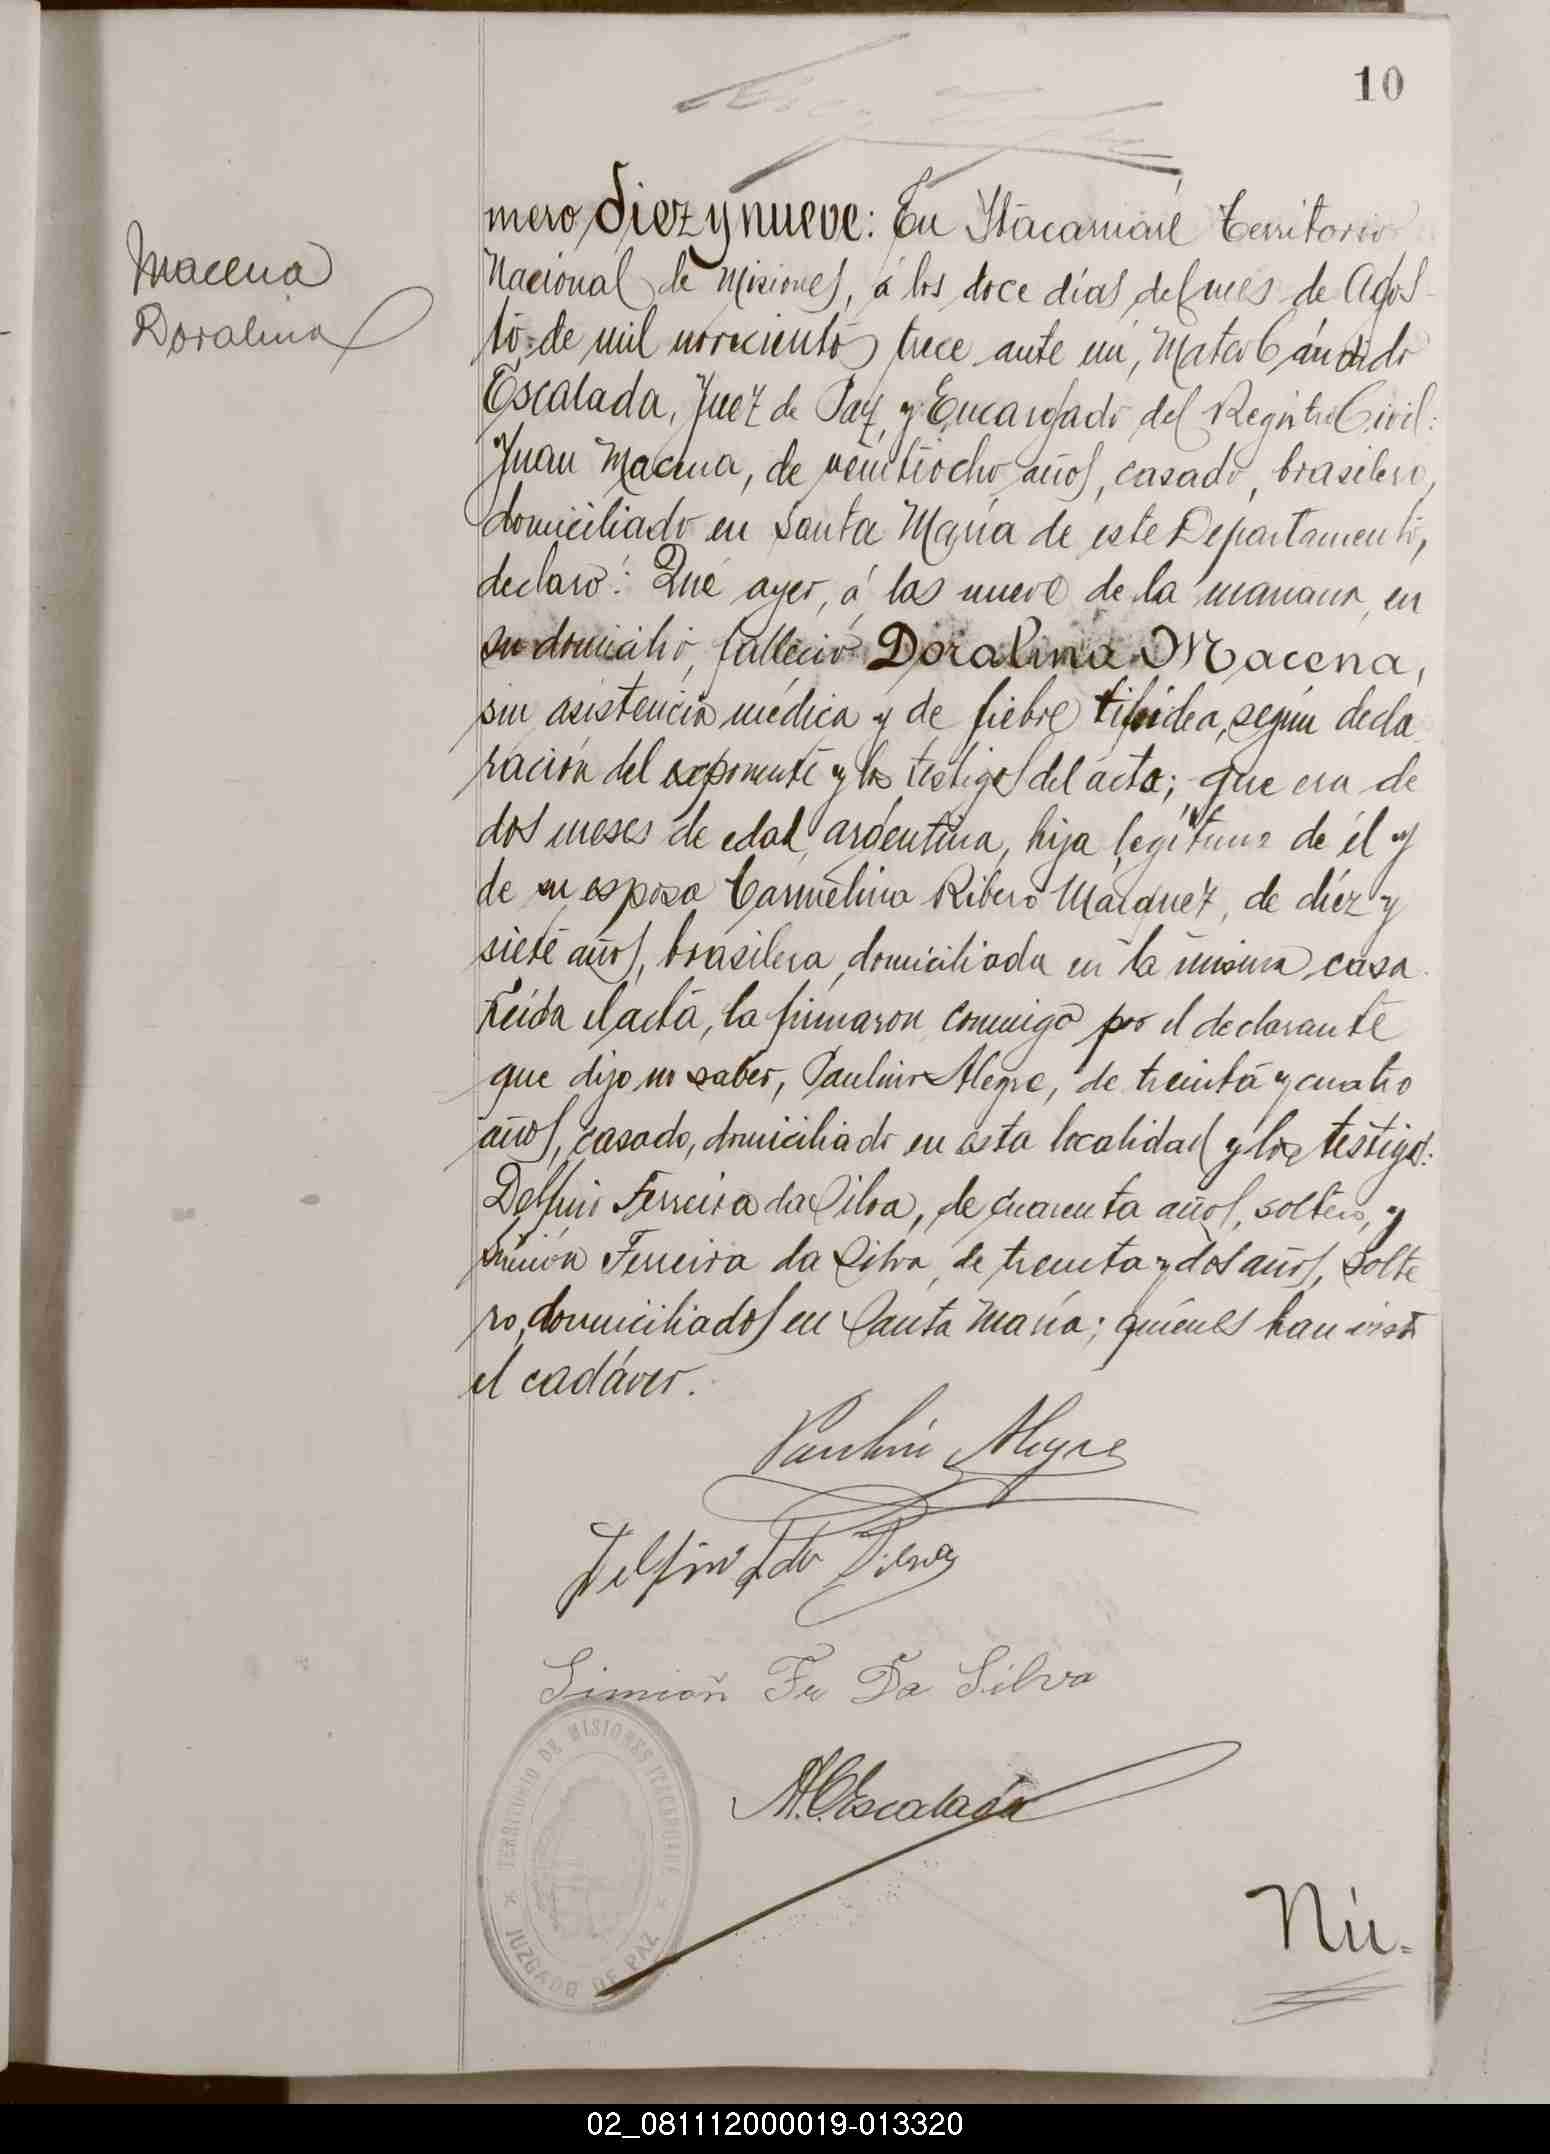 10
Macena
Doralina
mero Diez y nueve: En Itacaruaré Territorio
Nacional de Misiones, á los doce días del mes de Agos-
to, de mil novecientos trece ante mí, Mateo Cándido
Escalada, Juez de Paz, y Encargado del Registro Civil:
Juan Macena, de veintiocho años, casado, brasilero,
domiciliado en Santa María de este Departamento,
declaró: Qué ayer, á las nueve de la manana, en
su domicilio, falleció Doralina Macena,
sin asistencia médica y de fiebre tifoidea, según decla
ración del exponente y los testigos del acta; que era de
dos meses de edad, argentina, hija legítima de él y
de su esposa Carmelina Ribero Márquez, de diéz y
siete años, brasilera, domiciliada en la misma casa.
Leída el acta, la firmaron conmigo por el declarante
que dijo no saber, Paulino Alegre, de treinta y cuatro
años, casado, domiciliado en esta localidad y los testigos:
Delfin Ferreira da Silva, de cuarenta años, soltero, y
Simión Ferreira da Silva, de treinta y dos años, solte
ro, domiciliados en Santa María; quiénes han visto
el cadáver.
Paulino Alegre
Delfin F da Silva
Simioñ Fr Da Silva
TERRITORIO DE MISIONES ITACARUARE
M.C.Escalada
JUZGADO DE PAZ
Nú-
02_081112000019-013320